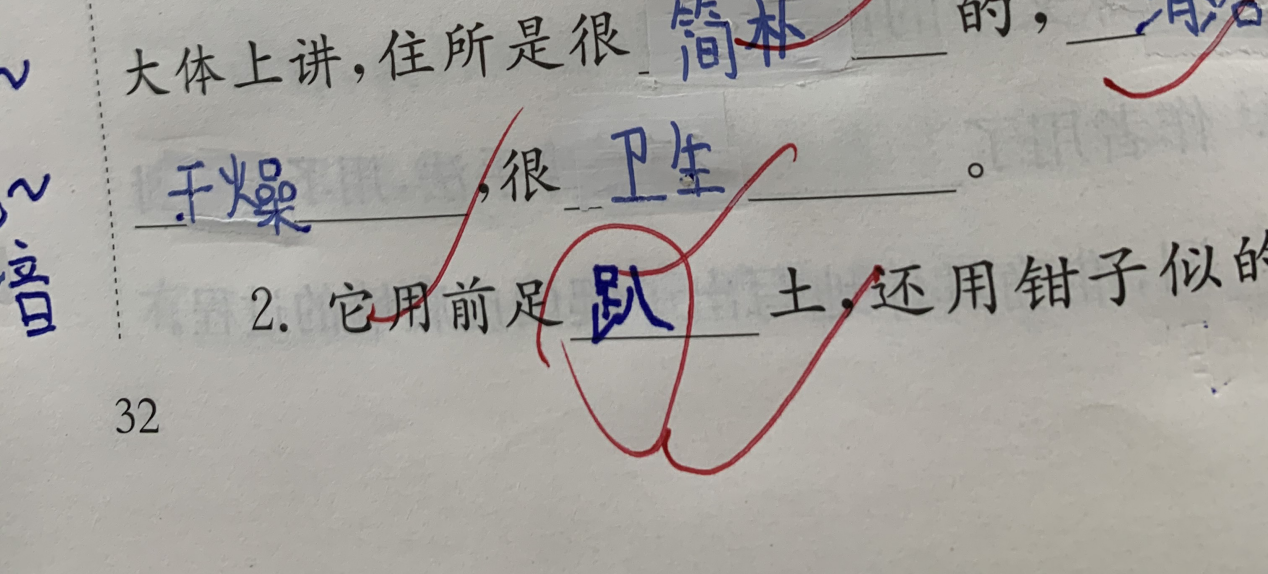 大体上讲，住所是很简朴的，清洁
干燥，很卫生。
2. 它用前足趴土，还用钳子似的
音
32